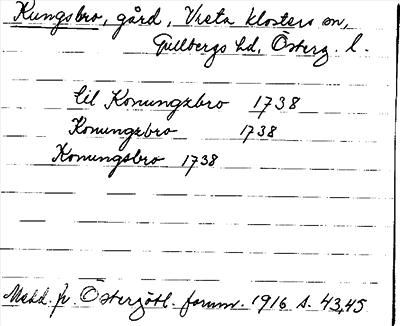 Kungsbro, gård, Vreta klosters sn,
Gullbergs hd, Österg. l.
til Konungzbro 1738
Konungzbro 1738
Konungsbro 1738
Medd. fr Östergötl. fornm. 1916 s. 43,45